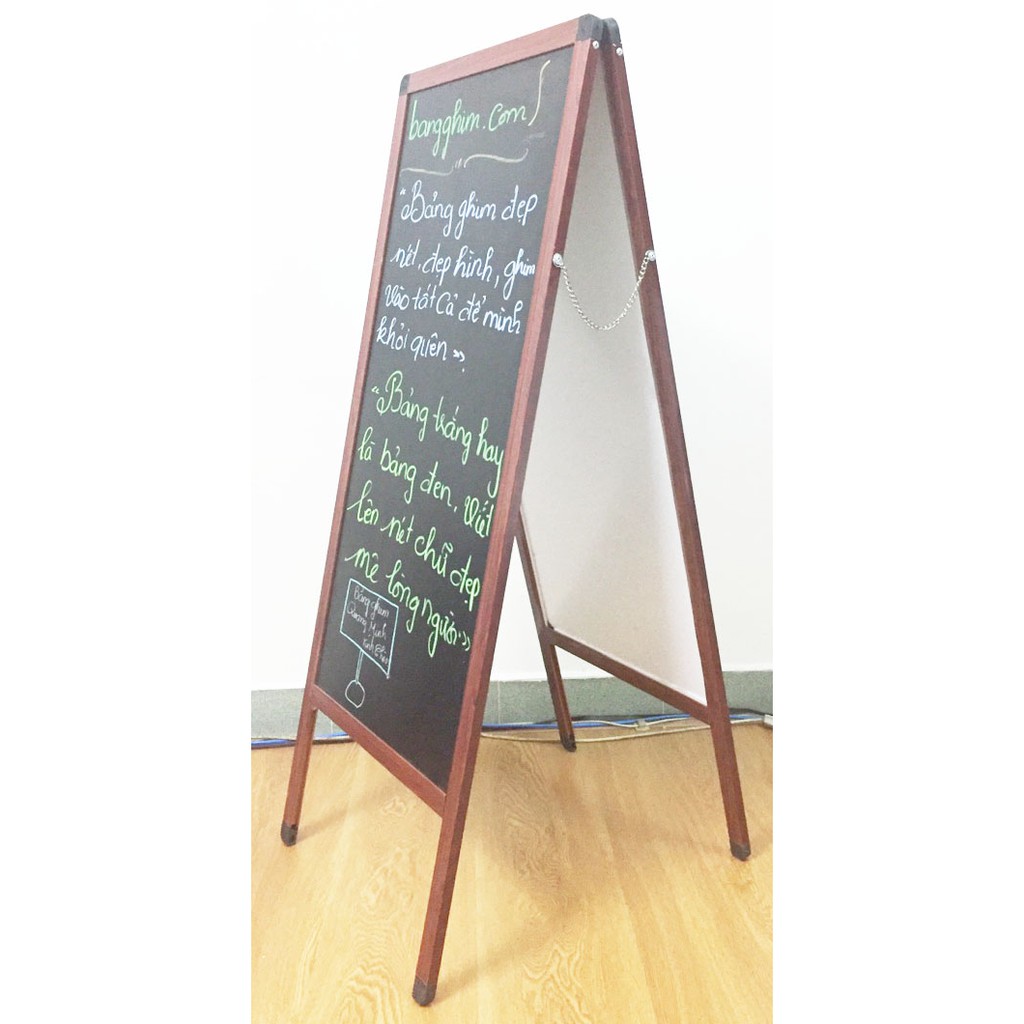 bangghim.com
"Bảng ghim đẹp
nét, đẹp hình, ghim
vào tất cả để mình
khỏi quên"
"Bảng trắng hay
là bảng đen, viết
lên nét chữ đẹp
mê lòng người."
Bảng ghim
Quang Minh